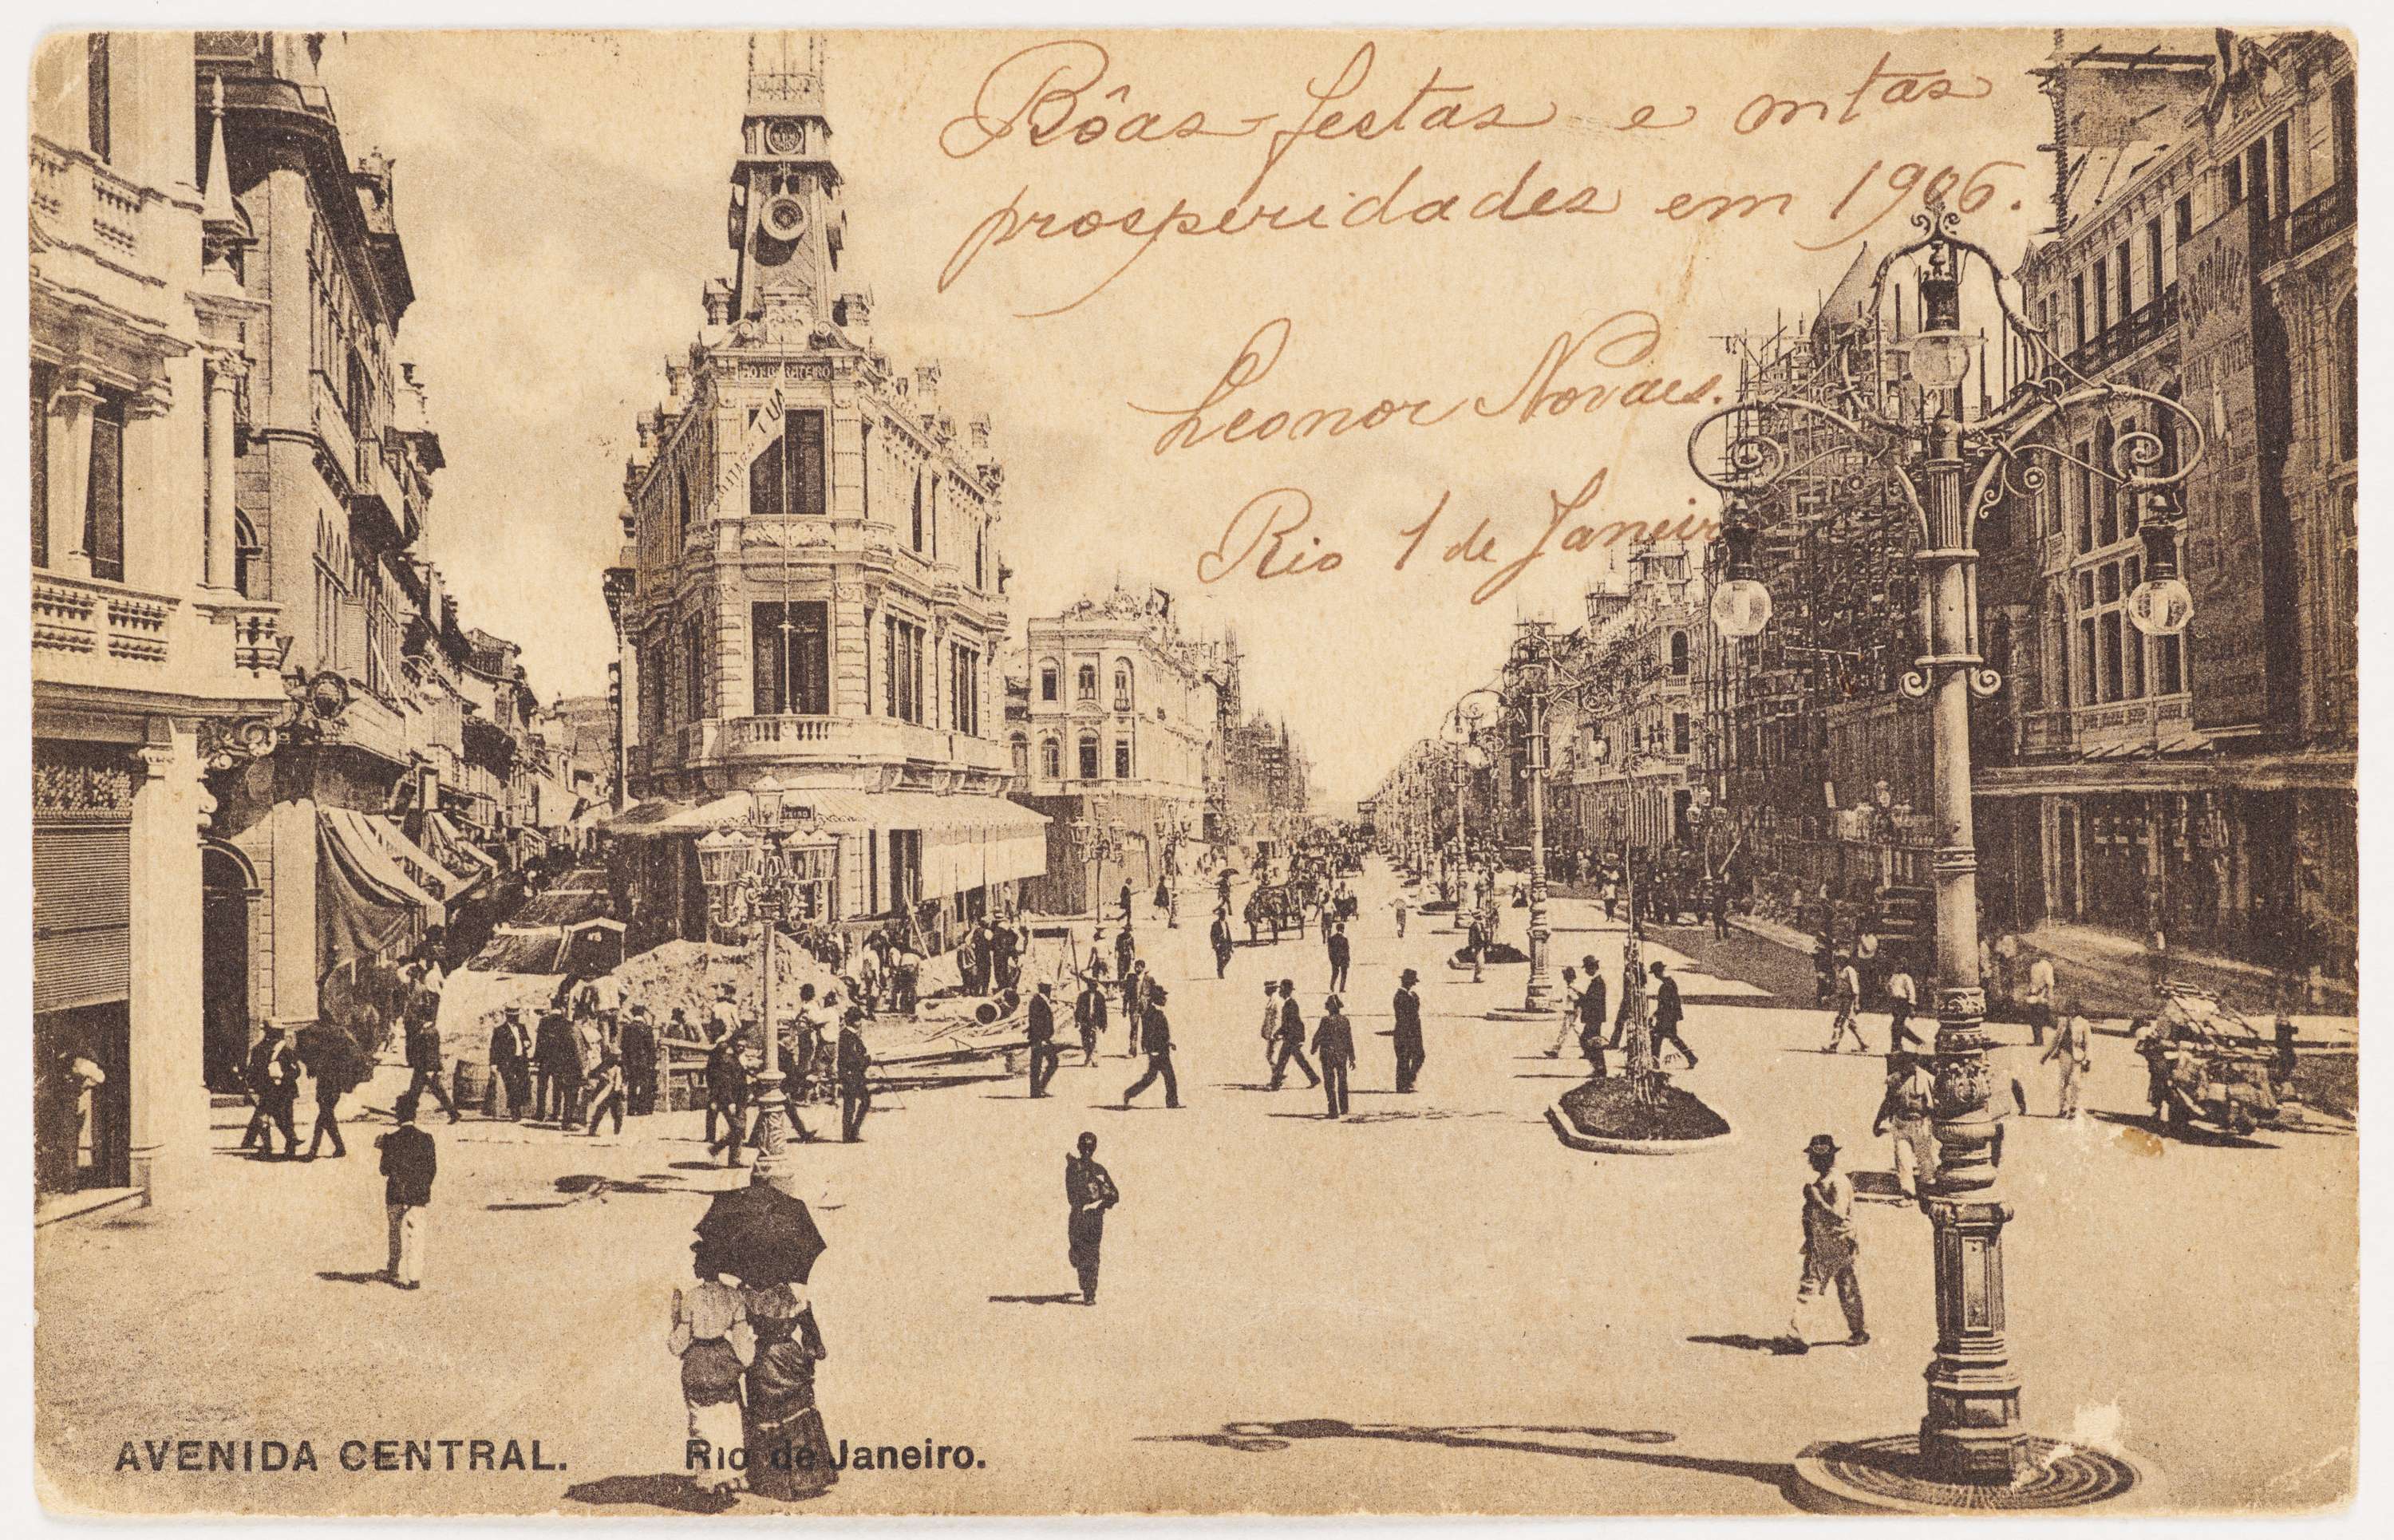 Bôas festas e mtas
prosperidades em 1906.
Leonor Novaes.
Rio 1 de Janeiro
AVENIDA CENTRAL. Rio de Janeiro.